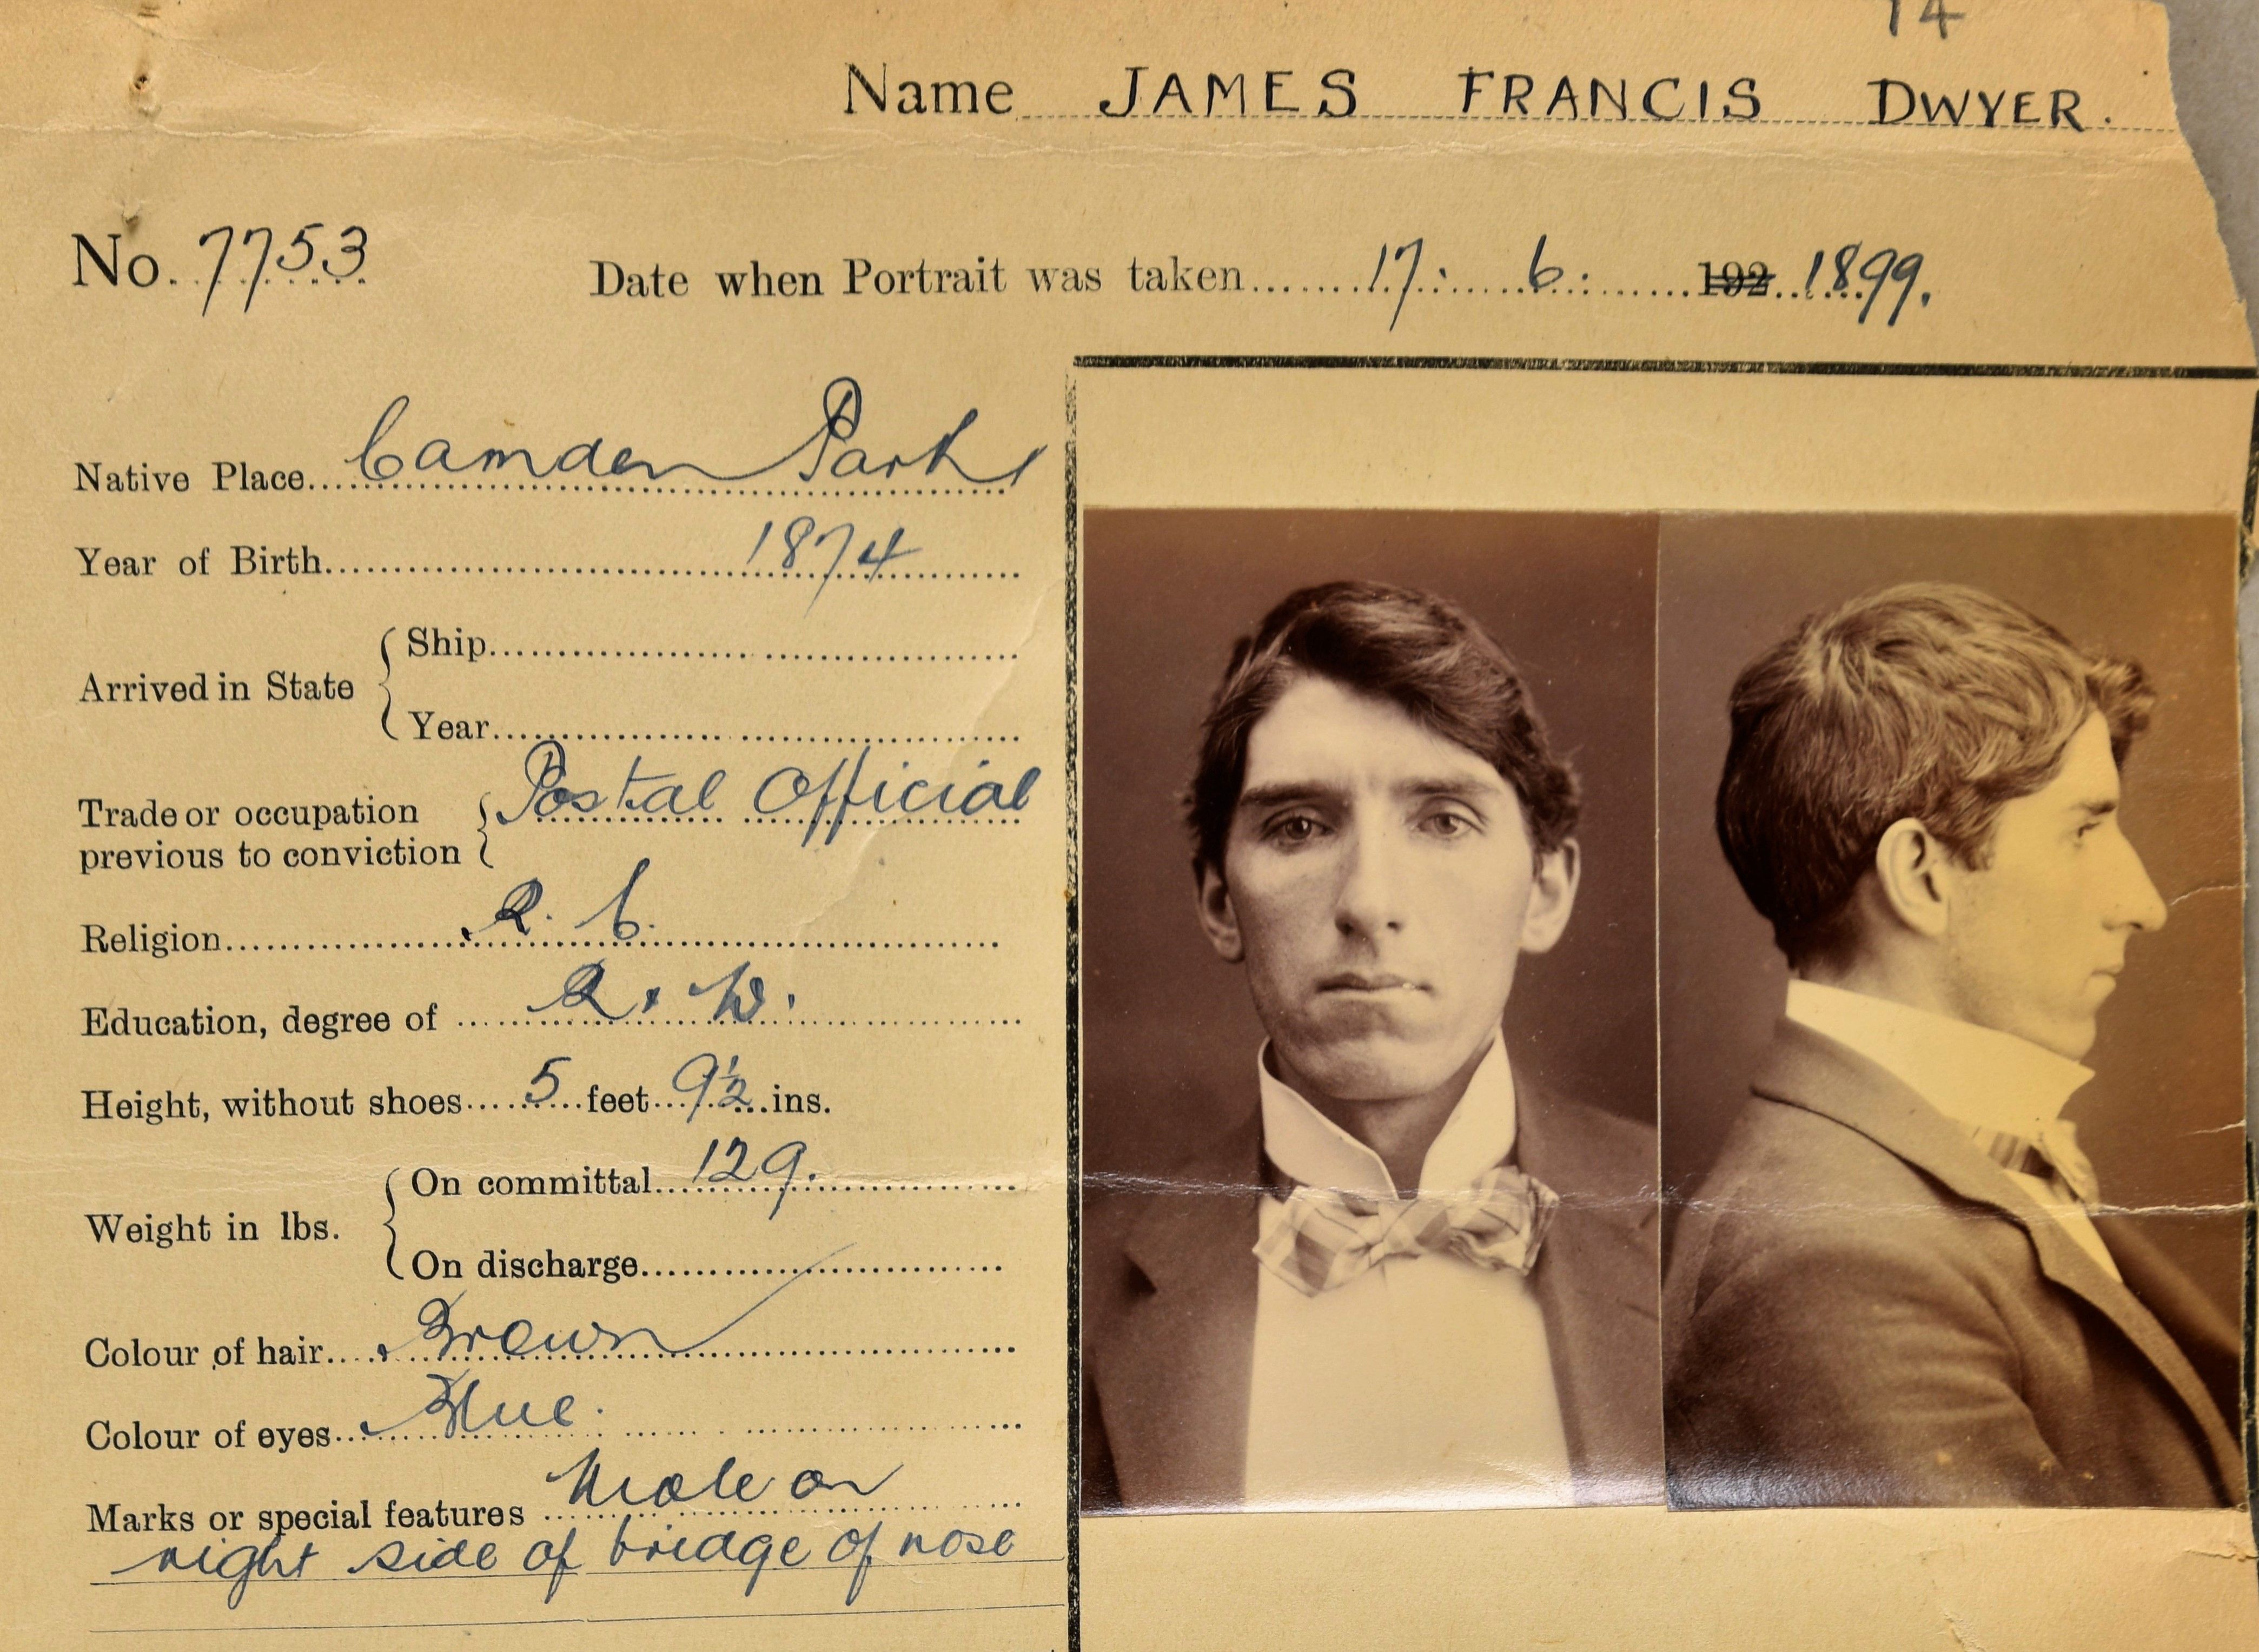 14
Name JAMES FRANCIS DWYER.
No. 7753
Date when Portrait was taken 17: 6: 192 1899.
Native Place Camden Park
Year of Birth 1874
Arrived in State
Ship
Year
Trade or occupation previous to conviction Postal Official
Religion R. C.
Education, degree of R. W.
Height, without shoes 5 feet 9½ ins.
Weight in lbs.
On committal 129.
On discharge
Colour of hair Brown
Colour of eyes Blue.
Marks or special features Mole on
right side of bridge of nose